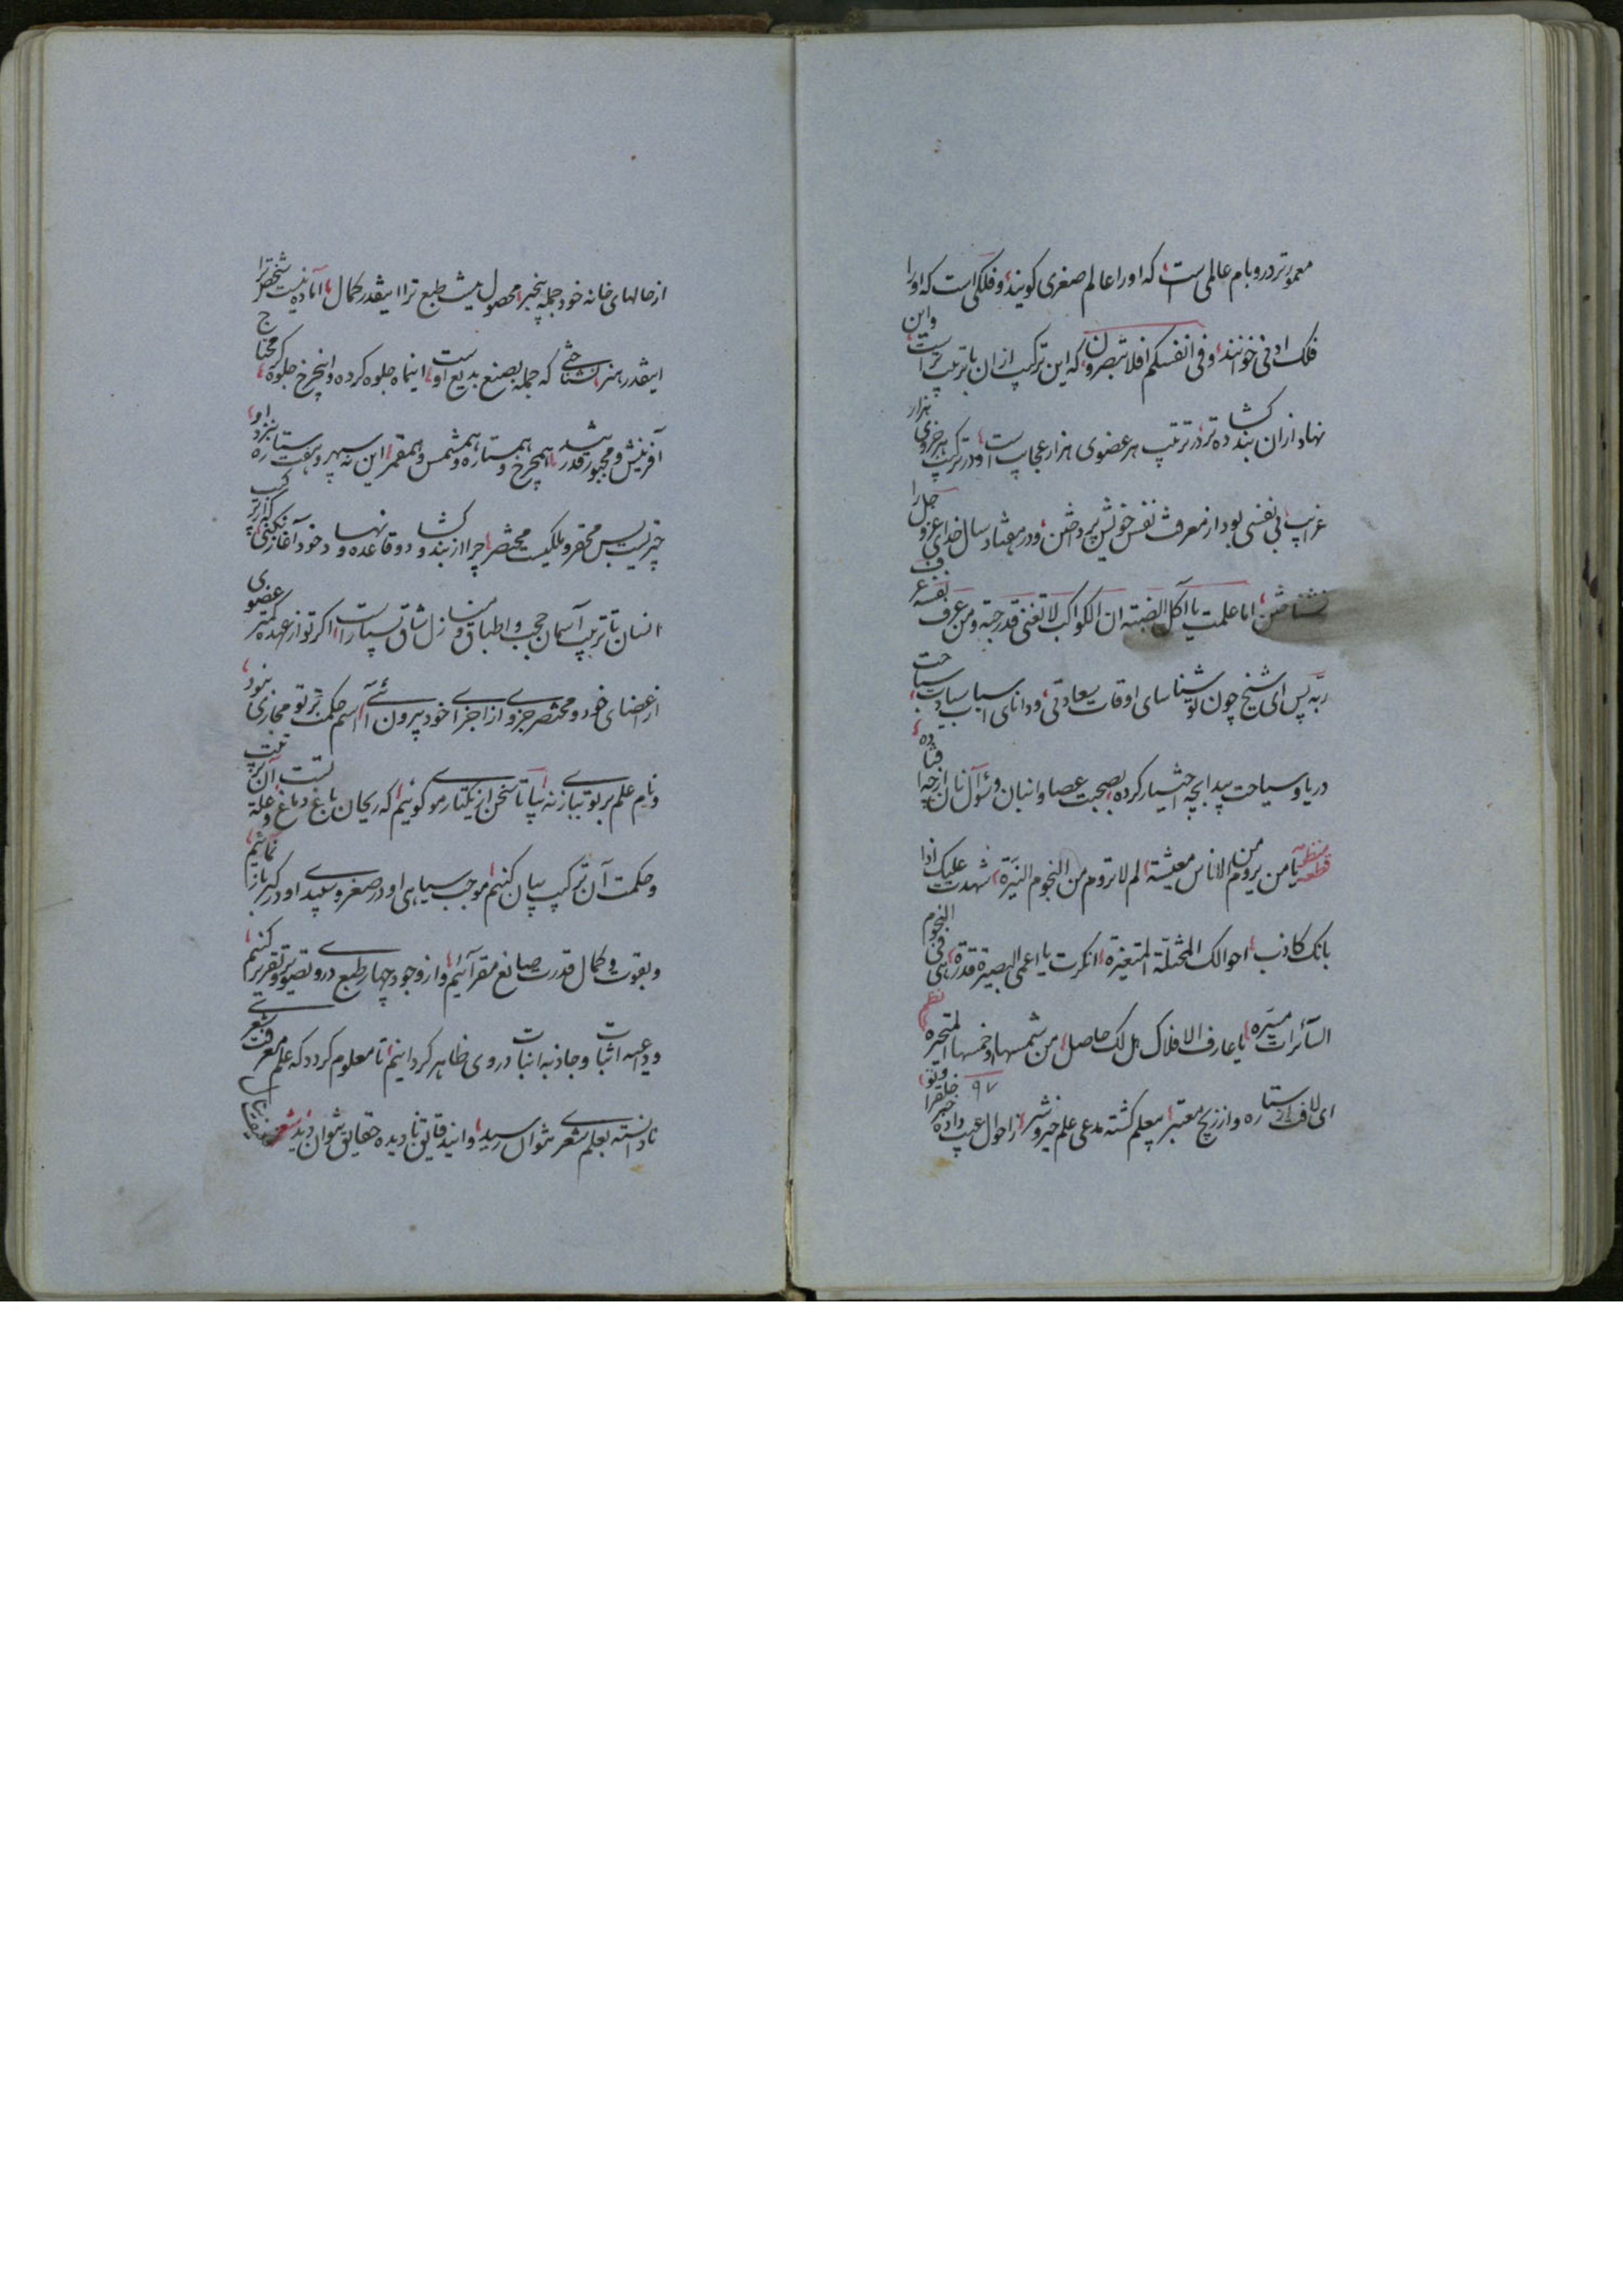 معمورتر در و بام عالمی است که او را عالم صغری کویند و فلکی است که او را
فلک ادنی خوانند و فی انفسکم افلا تبصرون که این ترکیب از ان با ترتیب ترست و این
نهاد از ان بند کشاده تر در ترتیب هر عضوی هزار عجایب است و در ترکیب هر جزوی هزار
غرایب بی نفسی بود از معرفت نفس خویش پرداختن و در هفتاد سال خدای عز و جل را
نشناختن اما علمت یا آکل الضبته ان الکواکب لا تغنی قدر حبته و من عرف نفسه عرف
ربه پس ای شیخ چون تو شناسای اوقات سعادتی و دانای اسباب سیادت سیاحت
دریا و سیاحت بیدا بچه اختیار کرده بصحبت عصا و انبان و سؤال نان از چه افتاده
قطعه منظمه یا من یروم من الاناس معیشة لم لا تروم من النجوم النیرة شهدت علیک اذا
بانک کاذب احوالک المختلة المتغیرة انکرت یا اعمی البصیرة قدرة هی فی النجوم
السائرات مسیره یا عارف الافلاک هل لک حاصل من شمسها و خمسها المتحیره نظم
ای لاف از ستاره و از زیج معتبر بیعلم کشته مدعی علم خیر و شر ز احوال غیب داده خبر خلق را و تو
۹۷
از حالهای خانه خود جمله بیخبر محصول نیست طبع ترا اینقدر کمال اماده نیست شخص ترا
اینقدر هنر نشناختی که جمله بصنع بدیع اوست اینماه جلوه کرده و اینچرخ جلوه کر محتاج
آفرینش و مجبور قدرتند همچرخ و همستاره و همشمس و همقمر این نه سپهر و هفت ستاره بنزد او
چیزیست بس محقر و ملکیست مختصر چرا از بند و کشاد و قاعده و نهاد خود آغاز نکنی که ترکیب
انسان با ترتیب آسمان و حجب و اطباق و منازل شاق نسیارا اکر تو از عهده کمتر عضوی
از اعضای خود و مختصر جزوی از اجزای خود بیرون آئی اسم حکمت بر تو مجازی نبود
و نام علم بر تو بیازی نه بیا تا سخن از یکتار مو کوئیم که ریحان باغ دماغ تست و علة ترتیب آن
و حکمت آن ترکیب بیان کنیم موجب سیاهی او در صغر و سپیدی او در کبر باز نمائیم
و بقوت و کمال قدرت صانع مقر آئیم و از وجود چهار طبع در وی تصویر و تقریر کنیم
و داعیه اثبات و جاذبه انبات در وی ظاهر کردانیم تا معلوم کردد که علم معرفت شعری
نادانسته بعلم شعر نتوان رسید و این دقایق نادیده حقایق نتوان دید شعر